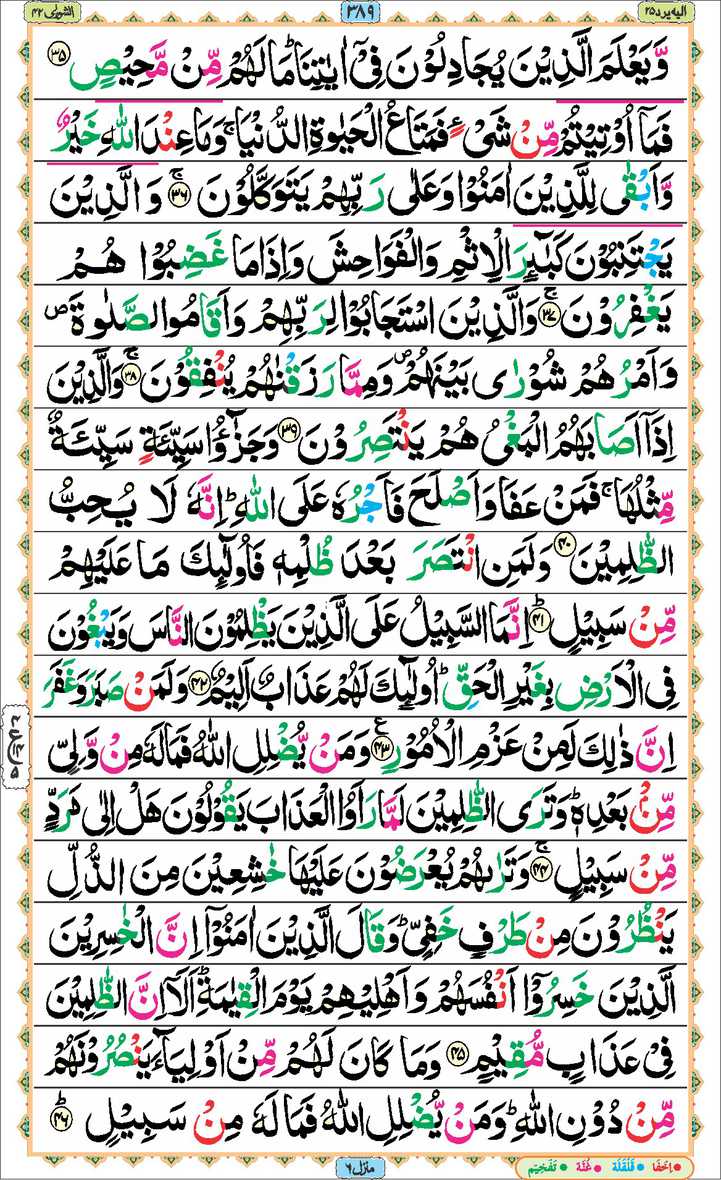 الیه یرد ۲۵ ۳۸۹ الشورٰی ۴۲
وَّیَعْلَمَ الَّذِیْنَ یُجَادِلُوْنَ فِیْۤ اٰیٰتِنَا ؕ مَا لَهُمْ مِّنْ مَّحِیْصٍ ۳۵
فَمَاۤ اُوْتِیْتُمْ مِّنْ شَیْءٍ فَمَتَاعُ الْحَیٰوةِ الدُّنْیَا ۚ وَمَا عِنْدَ اللّٰهِ خَیْرٌ
وَّاَبْقٰی لِلَّذِیْنَ اٰمَنُوْا وَعَلٰی رَبِّهِمْ یَتَوَكَّلُوْنَ ۚ ۳۶ وَالَّذِیْنَ
یَجْتَنِبُوْنَ كَبٰٓئِرَ الْاِثْمِ وَالْفَوَاحِشَ وَاِذَا مَا غَضِبُوْا هُمْ
یَغْفِرُوْنَ ۚ ۳۷ وَالَّذِیْنَ اسْتَجَابُوْا لِرَبِّهِمْ وَاَقَامُوا الصَّلٰوةَ ۪
وَاَمْرُهُمْ شُوْرٰی بَیْنَهُمْ ۪ وَمِمَّا رَزَقْنٰهُمْ یُنْفِقُوْنَ ۚ ۳۸ وَالَّذِیْنَ
اِذَاۤ اَصَابَهُمُ الْبَغْیُ هُمْ یَنْتَصِرُوْنَ ۳۹ وَجَزٰٓؤُا سَیِّئَةٍ سَیِّئَةٌ
مِّثْلُهَا ۚ فَمَنْ عَفَا وَاَصْلَحَ فَاَجْرُهٗ عَلَی اللّٰهِ ؕ اِنَّهٗ لَا یُحِبُّ
الظّٰلِمِیْنَ ۴۰ وَلَمَنِ انْتَصَرَ بَعْدَ ظُلْمِهٖ فَاُولٰٓئِكَ مَا عَلَیْهِمْ
مِّنْ سَبِیْلٍ ؕ ۴۱ اِنَّمَا السَّبِیْلُ عَلَی الَّذِیْنَ یَظْلِمُوْنَ النَّاسَ وَیَبْغُوْنَ
فِی الْاَرْضِ بِغَیْرِ الْحَقِّ ؕ اُولٰٓئِكَ لَهُمْ عَذَابٌ اَلِیْمٌ ۴۲ وَلَمَنْ صَبَرَ وَغَفَرَ
اِنَّ ذٰلِكَ لَمِنْ عَزْمِ الْاُمُوْرِ ۴۳ ع وَمَنْ یُّضْلِلِ اللّٰهُ فَمَا لَهٗ مِنْ وَّلِیٍّ
مِّنْۢ بَعْدِهٖ ؕ وَتَرَی الظّٰلِمِیْنَ لَمَّا رَاَوُا الْعَذَابَ یَقُوْلُوْنَ هَلْ اِلٰی مَرَدٍّ
مِّنْ سَبِیْلٍ ۚ ۴۴ وَتَرٰىهُمْ یُعْرَضُوْنَ عَلَیْهَا خٰشِعِیْنَ مِنَ الذُّلِّ
یَنْظُرُوْنَ مِنْ طَرْفٍ خَفِیٍّ ؕ وَقَالَ الَّذِیْنَ اٰمَنُوْۤا اِنَّ الْخٰسِرِیْنَ
الَّذِیْنَ خَسِرُوْۤا اَنْفُسَهُمْ وَاَهْلِیْهِمْ یَوْمَ الْقِیٰمَةِ ؕ اَلَاۤ اِنَّ الظّٰلِمِیْنَ
فِیْ عَذَابٍ مُّقِیْمٍ ۴۵ وَمَا كَانَ لَهُمْ مِّنْ اَوْلِیَآءَ یَنْصُرُوْنَهُمْ
مِّنْ دُوْنِ اللّٰهِ ؕ وَمَنْ یُّضْلِلِ اللّٰهُ فَمَا لَهٗ مِنْ سَبِیْلٍ ؕ ۴۶
منزل ۶
اِخفَا قَلْقَلَة غُنَّة تَفْخِيْم